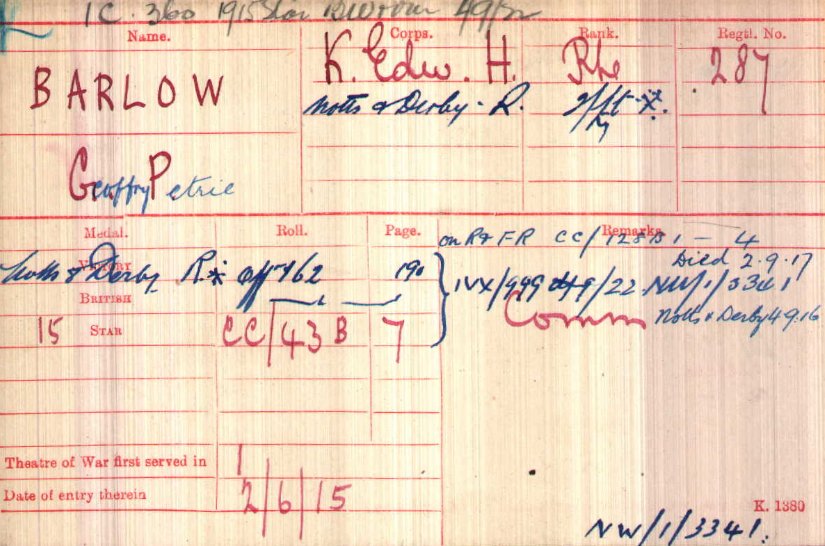 1C. 360 1915 Star
Name. Corps. Rank. Regtl. No.
BARLOW K. Edw. H. Pte 287
Notts & Derby. R.
Geoffry Petrie
Medal. Roll. Page. Remarks.
on R & FR CC/
Died 2.9.17
VICTORY Notts & Derby R* off 162 190
IVX/999 22 NW/1/3341
BRITISH
Comm Notts & Derby 4.9.16
15 STAR CC/43 B 7
Theatre of War first served in 1
Date of entry therein 2/6/15
K. 1380
NW/1/3341.